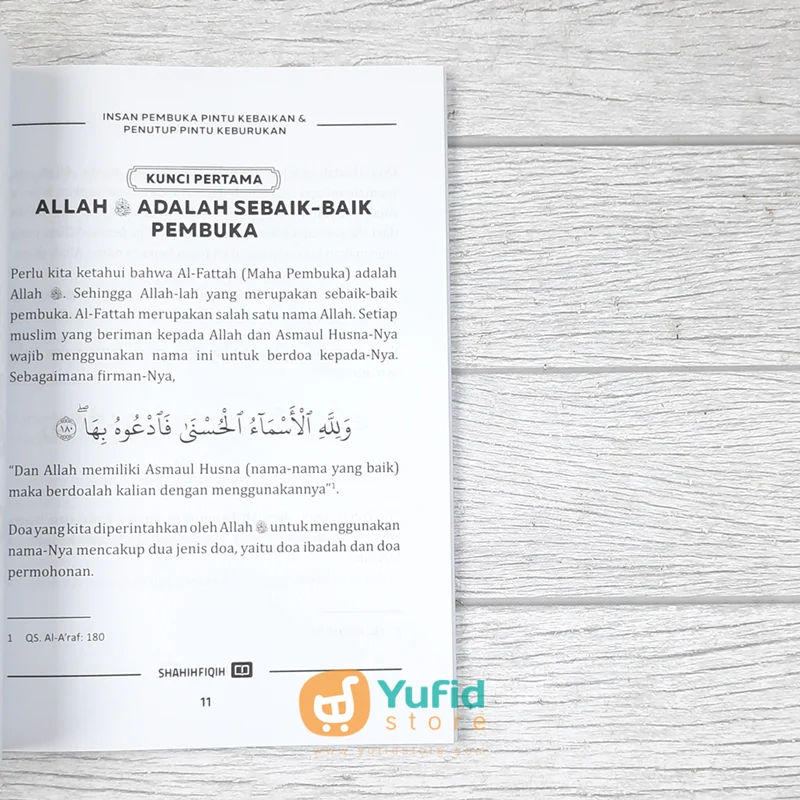 INSAN PEMBUKA PINTU KEBAIKAN &
PENUTUP PINTU KEBURUKAN
KUNCI PERTAMA
ALLAH ﷻ ADALAH SEBAIK-BAIK
PEMBUKA
Perlu kita ketahui bahwa Al-Fattah (Maha Pembuka) adalah
Allah ﷻ. Sehingga Allah-lah yang merupakan sebaik-baik
pembuka. Al-Fattah merupakan salah satu nama Allah. Setiap
muslim yang beriman kepada Allah dan Asmaul Husna-Nya
wajib menggunakan nama ini untuk berdoa kepada-Nya.
Sebagaimana firman-Nya,
وَلِلَّهِ ٱلْأَسْمَآءُ ٱلْحُسْنَىٰ فَٱدْعُوهُ بِهَا ۖ ١٨٠
“Dan Allah memiliki Asmaul Husna (nama-nama yang baik)
maka berdoalah kalian dengan menggunakannya”¹.
Doa yang kita diperintahkan oleh Allah ﷻ untuk menggunakan
nama-Nya mencakup dua jenis doa, yaitu doa ibadah dan doa
permohonan.
1 QS. Al-A’raf: 180
SHAHIHFIQIH
11
Yufid
store
www.yufidstore.com